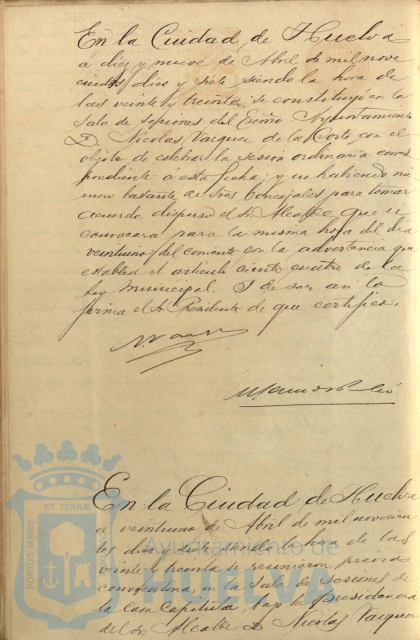 En la Ciudad de Huelva
á diez y nueve de Abril de mil nove
cientos diez y siete siendo la hora de
las veinte y treinta, se constituyó en la
Sala de sesiones del Excmo Ayuntamiento
D. Nicolas Vazquez de la Corte con el
objeto de celebrar la sesion ordinaria corres
pondiente á esta fecha; y no habiendo nú
mero bastante de Sres Concejales para tomar
acuerdo dispuso el Sr Alcalde que se
convocara para la misma hora del dia
veintiuno del corriente con la advertencia que
establece el articulo ciento cuatro de la
Ley Municipal. Y de ser así lo
firma el Sr Presidente de que certifico.
En la Ciudad de Huelva
a veintiuno de Abril de mil novecien
tos diez y siete siendo la hora de las
veinte y treinta se reunieron previa
convocatoria, en la Sala de sesiones de
la Casa Capitular, bajo la presidencia
del Sr Alcalde D. Nicolas Vazquez
PORTUS MARIS
ET TERRÆ
Ayuntamiento de
Huelva